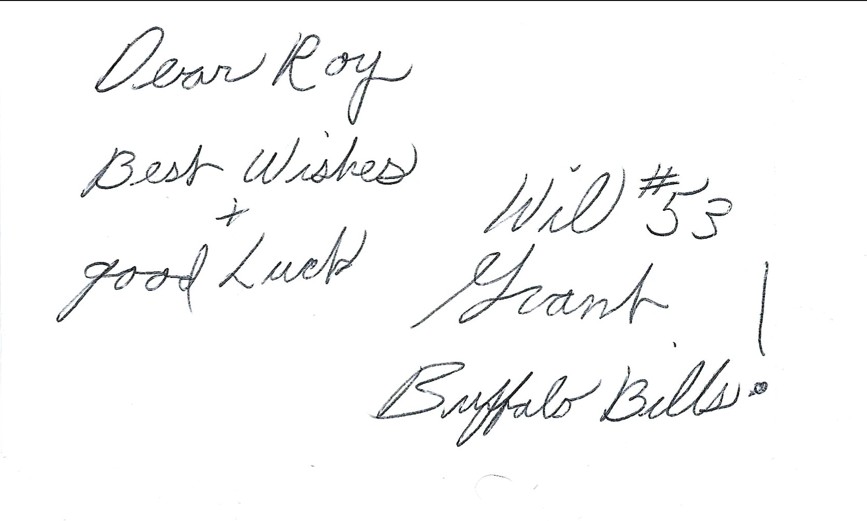 Dear Roy
Best Wishes
+
good Luck
Will #53
Grant
Buffalo Bills!